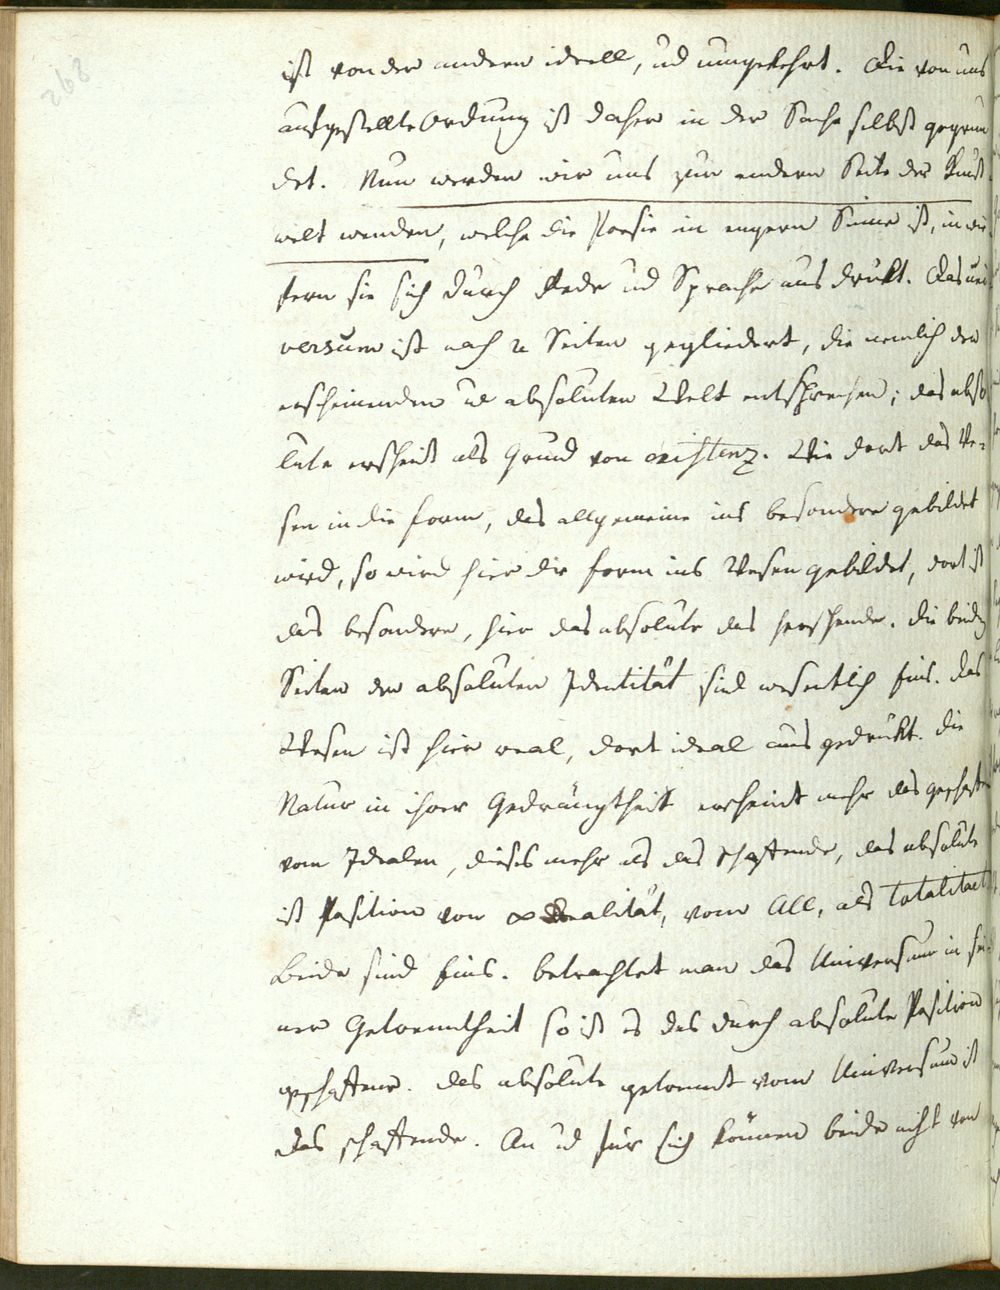 268
ist von der andern ideell, ud umgekehrt. Die von uns
aufgestellte Ordnung ist daher in der Sache selbst gegrün
det. Nun werden wir uns zur andern Seite der Kunst
welt wenden, welche die Poesie im engern Sinne ist, in wie
fern sie sich durch Rede ud Sprache aus drükt. Das uni
versum ist nach 2 Seiten gegliedert, die nemlich der
erscheinenden ud absoluten Welt entsprechen; das abso
lute erscheint als Grund von existenz. Wie dort das We-
sen in die Form, das allgemeine ins besondere gebildet
wird, so wird hier die Form ins Wesen gebildet, dort ist
das besondere, hier das absolute das herschende. die beiden
Seiten der absoluten Identität sind wesentlich Eins. das
Wesen ist hier real, dort ideal aus gedrükt. die
Natur in ihrer Gedrängtheit erscheint mehr das geschaffene
vom Idealen, dieses mehr als das schaffende, das absolute
ist Position von ∞ Realität, vom All, als Totalitaet
Beide sind Eins. betrachtet man das Universum in sei
ner Getrenntheit so ist es das durch absolute Position
geschaffene. das absolute getrennt vom Universum ist
das schaffende. An ud für sich können beide nicht von